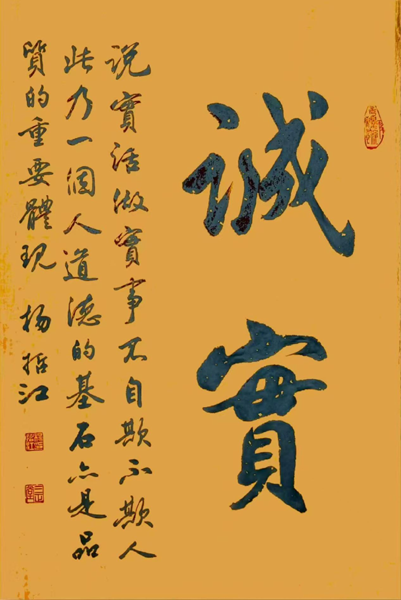 誠實
说實话做實事不自欺不欺人
此乃一個人道德的基石亦是品
質的重要體現 杨拓江